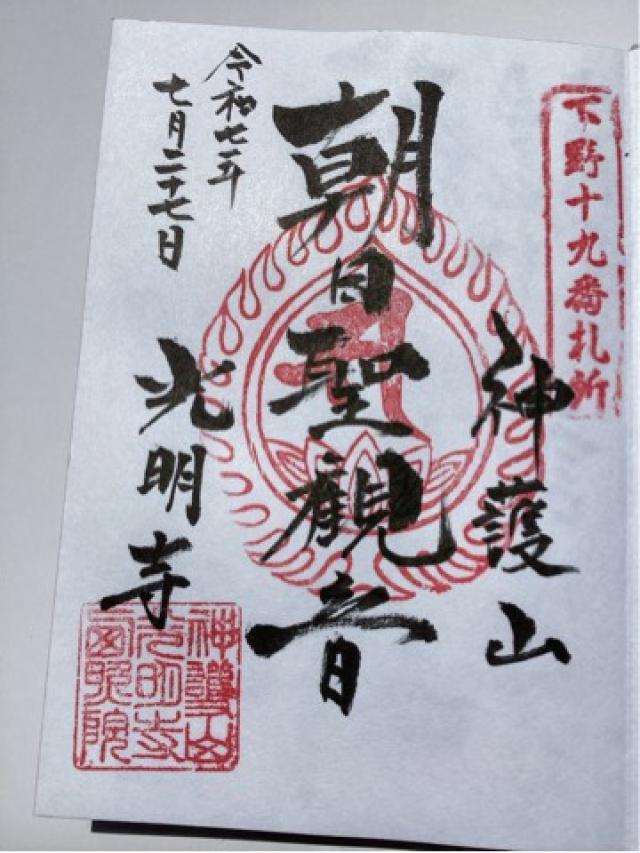 下野十九番札所
神護山
朝日聖観音
令和七年
七月二十七日
光明寺
神護山
光明寺